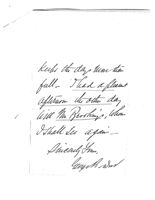 keeps the days more than
full — I had a pleasant
afternoon the other day
with Mr Brookings, whom
I shall see again —
Sincerely Yours,
George